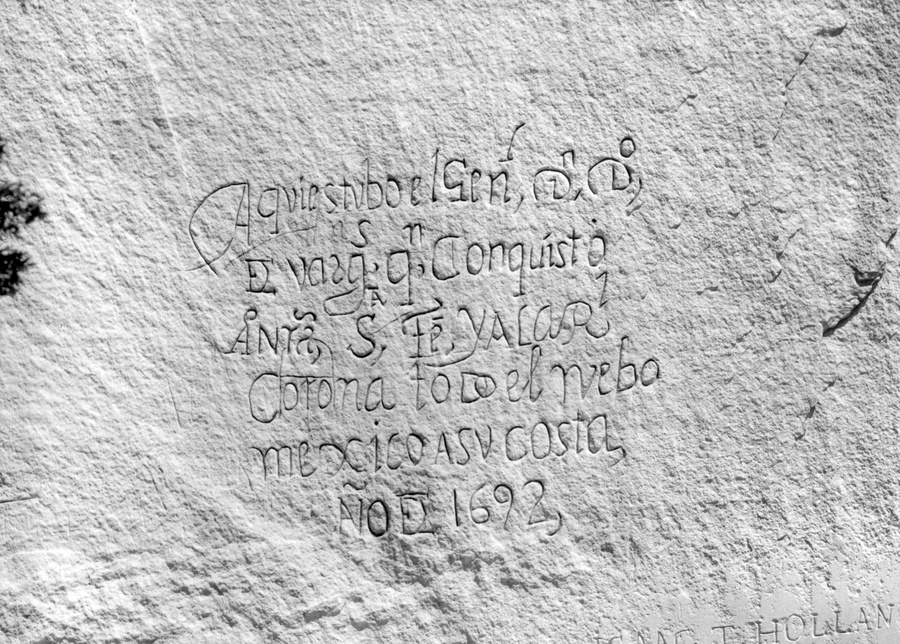 Aqui estubo el Genl. Dn. Do.
de vargs. qn. Conquisto
A Nra. Sta. Fe, Y A LA Rl
Corona todo el nuebo
mexico A SU costa,
AÑO DE 1692,
T. HOLLAN